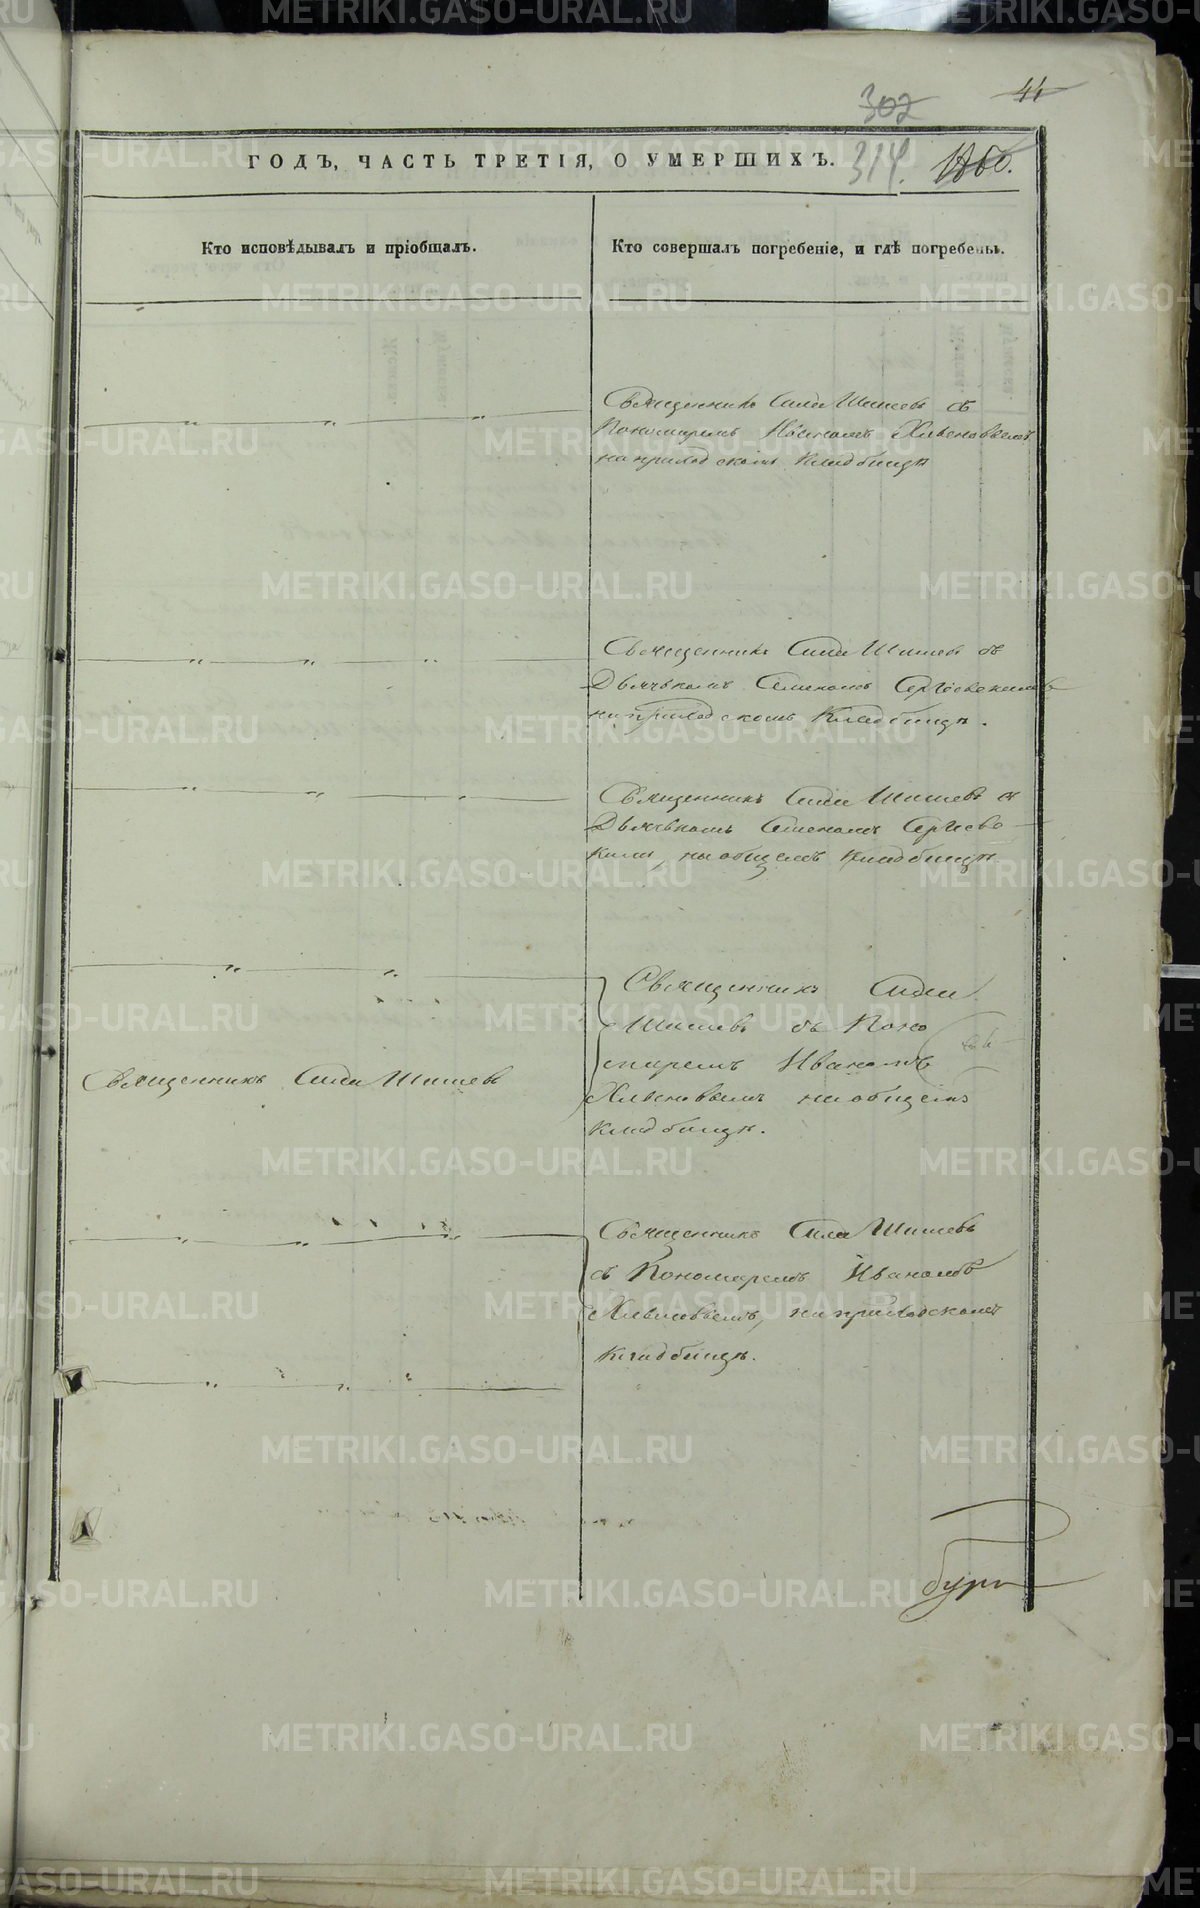 44
302
ГОДЪ, ЧАСТЬ ТРЕТІЯ, О УМЕРШИХЪ. 314. 1860.
Кто исповѣдывалъ и пріобщалъ.
Кто совершалъ погребеніе, и гдѣ погребены.
Священникъ Сила Шишевъ съ
Пономаремъ Иваномъ Хлыновымъ
на приходскомъ кладбищѣ
Священникъ Сила Шишевъ съ
Дьячкомъ Семеномъ
на приходскомъ Кладбищѣ.
Священникъ Сила Шишевъ съ
Дьячкомъ Семеномъ
на общемъ кладбищѣ
Священникъ Сила
Шишевъ съ Поно
маремъ Иваномъ
Хлыновымъ на общемъ
кладбищѣ.
Священникъ Сила Шишевъ
Священникъ Сила Шишевъ
съ Пономаремъ Иваномъ
Хлыновымъ, на приходскомъ
кладбищѣ.
METRIKI.GASO-URAL.RU